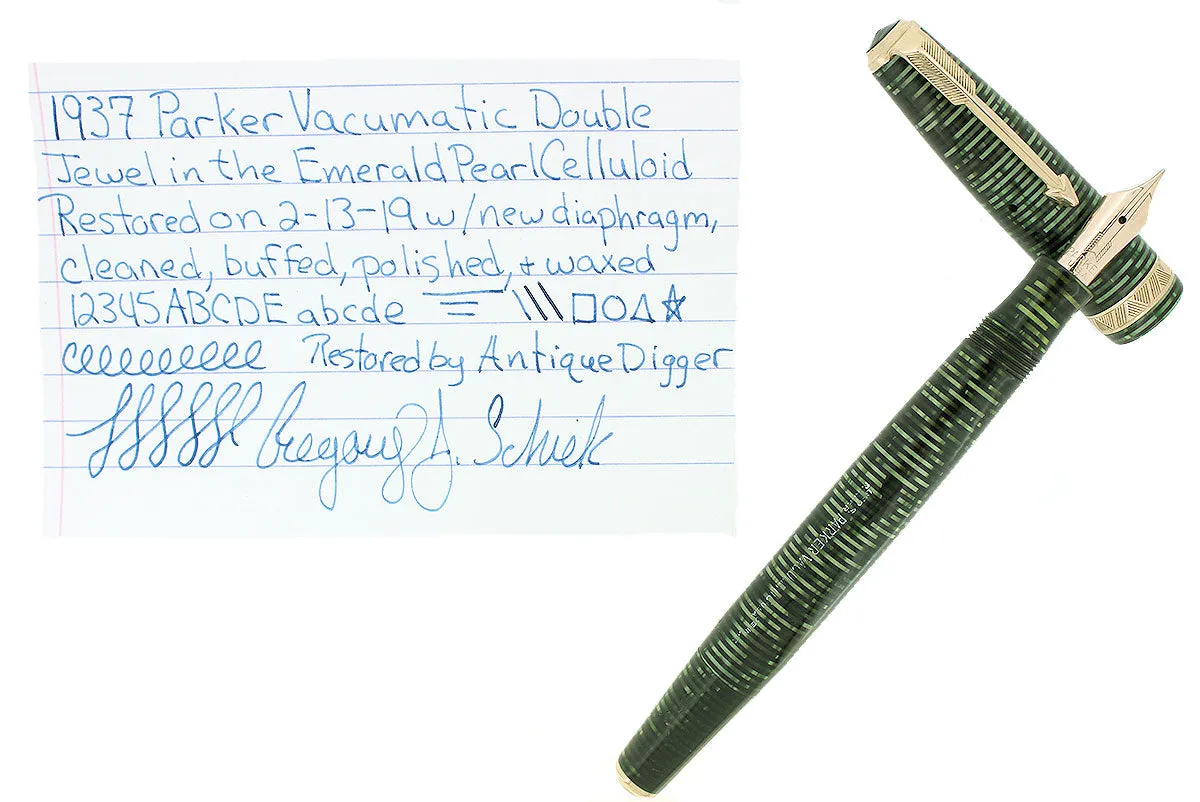 1937 Parker Vacumatic Double
Jewel in the Emerald Pearl Celluloid
Restored on 2-13-19 w/new diaphragm,
cleaned, buffed, polished, + waxed
12345 ABCDE abcde
Restored by Antique Digger
Gregory J. Schiek
PARKER